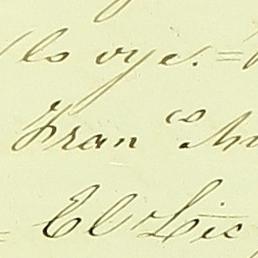 lo oye. =
Fran co
= El Lic